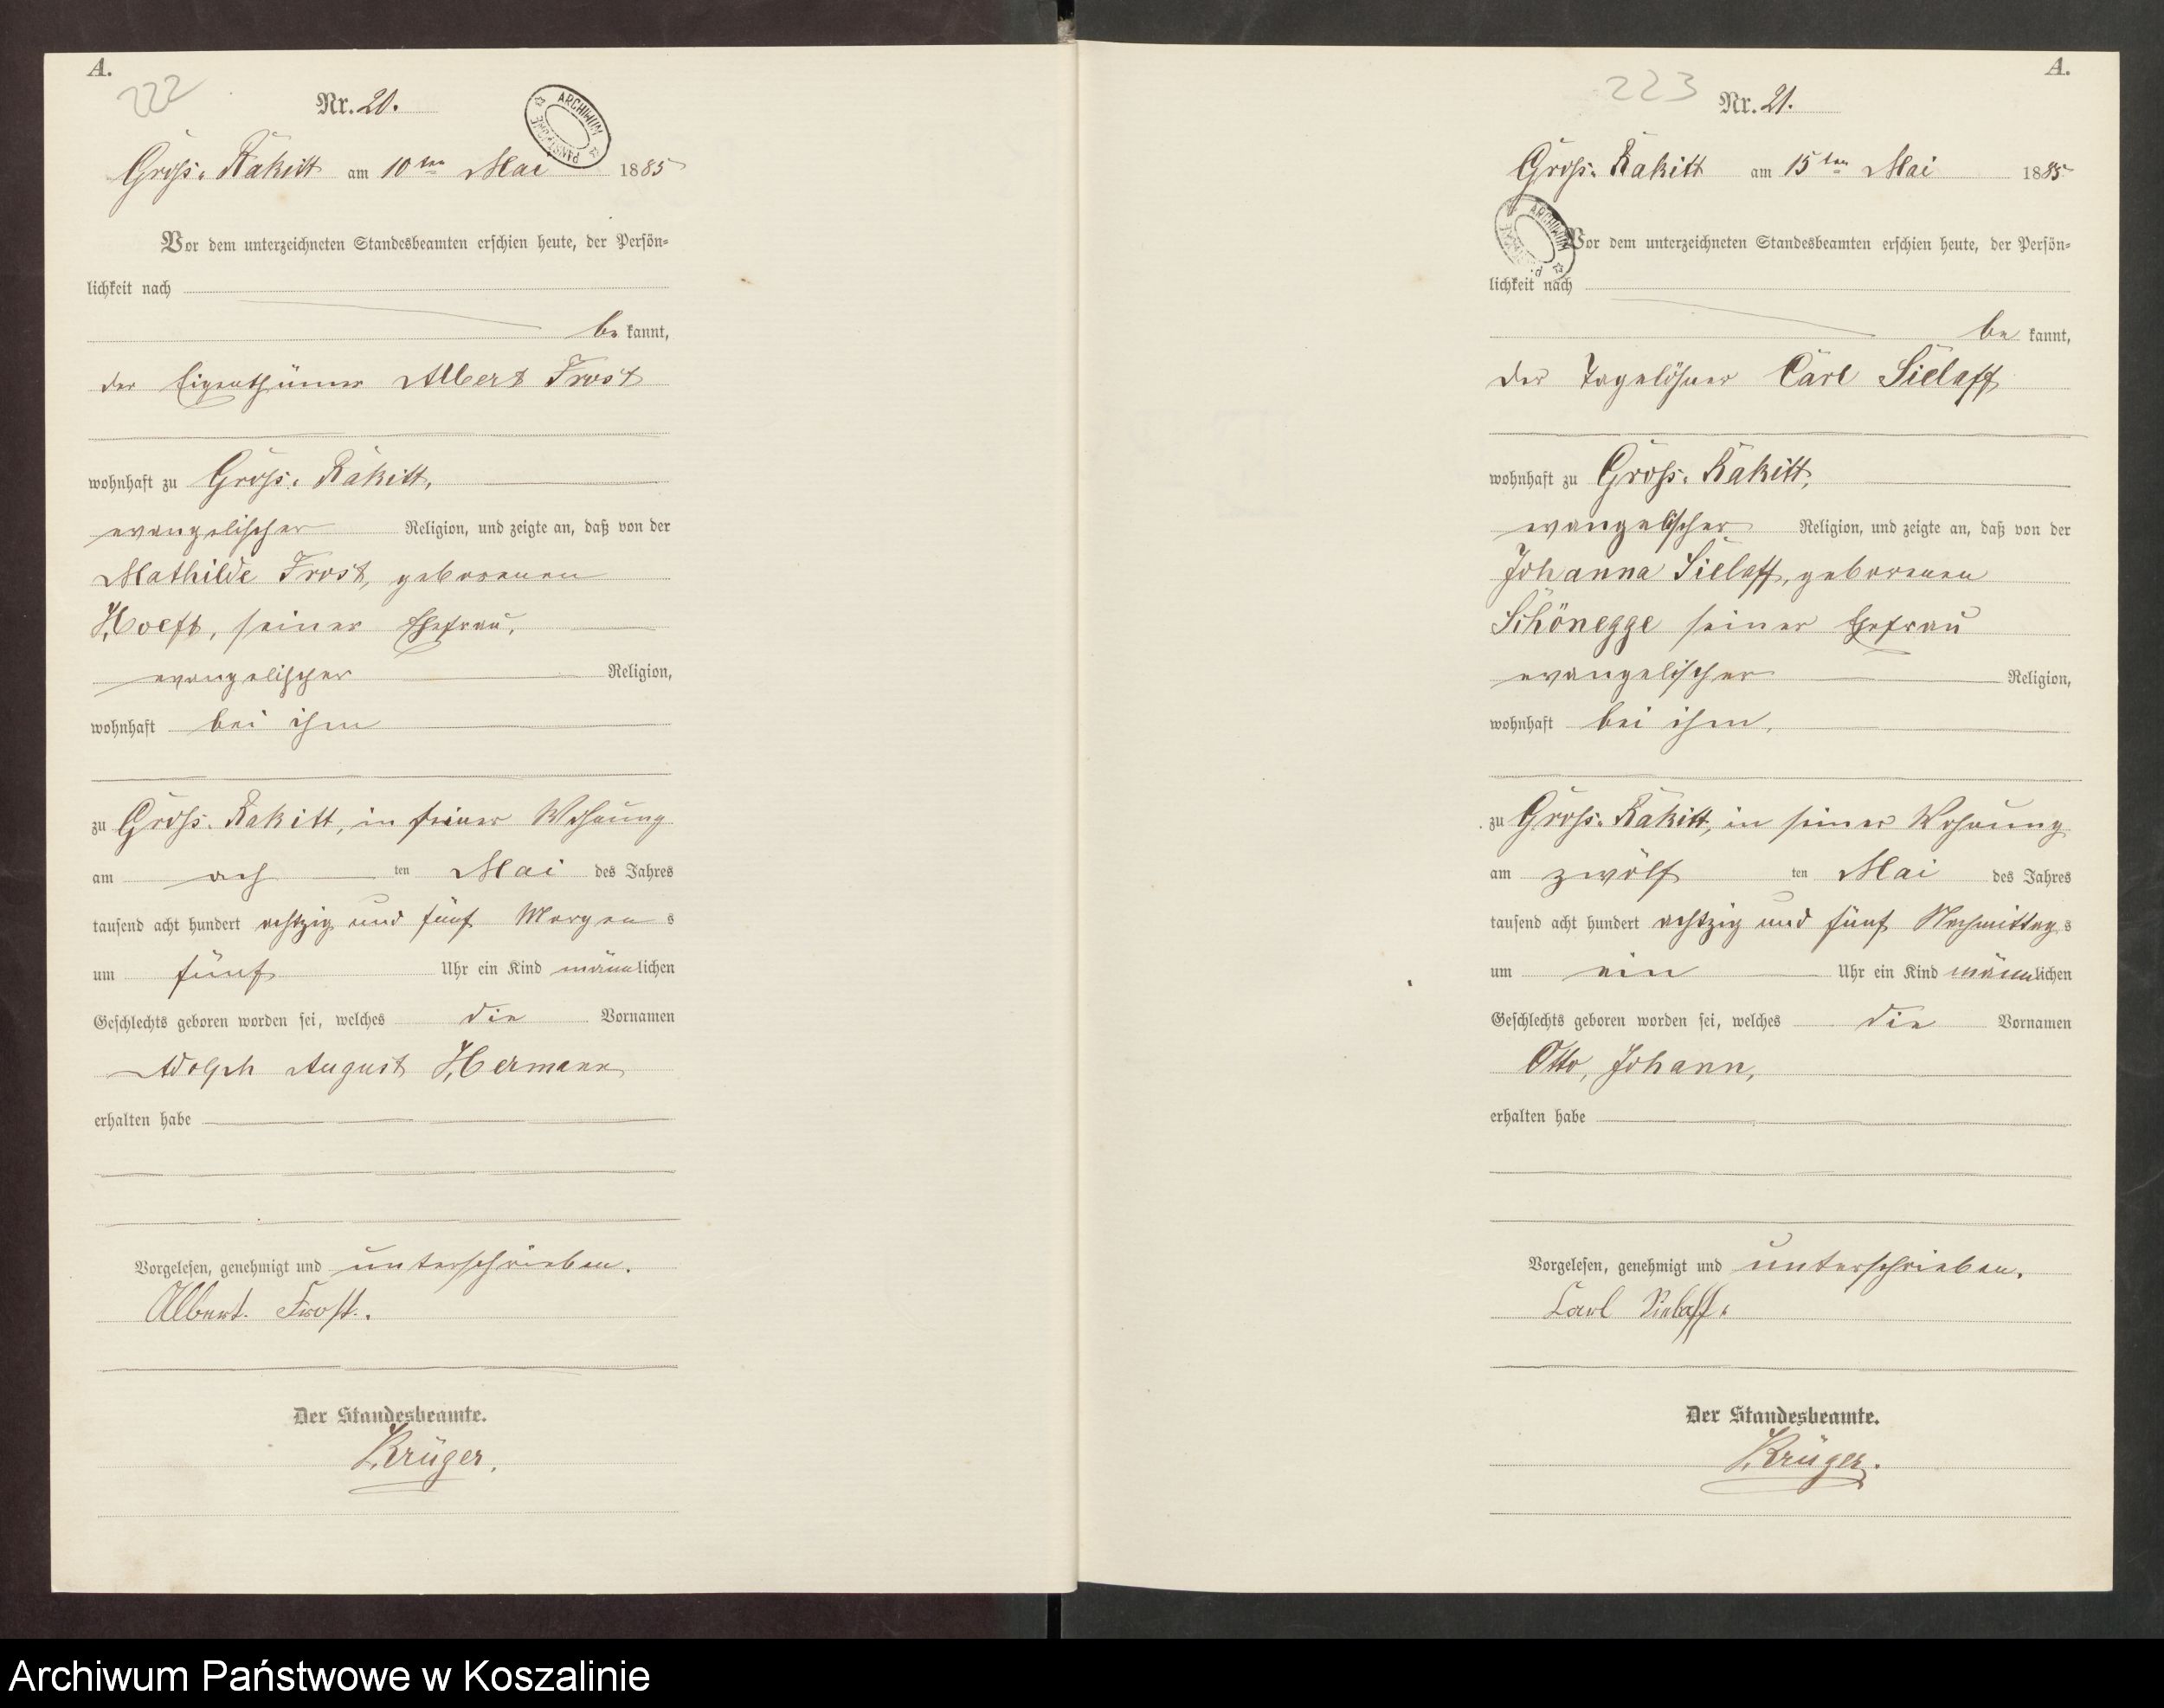 A.
222
Nr. 20.
ARCHIWUM PAŃSTWOWE
Gross-Rakitt am 10ten Mai 1885
Vor dem unterzeichneten Standesbeamten erschien heute, der Persön=
lichkeit nach
be kannt,
der Eigenthümer Albert Frost
wohnhaft zu Gross-Rakitt,
evangelischer Religion, und zeigte an, daß von der
Mathilde Frost, geborenen
Hoeft, seiner Ehefrau,
evangelischer Religion,
wohnhaft bei ihm
zu Gross-Rakitt, in seiner Wohnung
am ach ten Mai des Jahres
tausend acht hundert achtzig und fünf Morgen s
um fünf Uhr ein Kind männlichen
Geschlechts geboren worden sei, welches die Vornamen
Adolph August Hermann
erhalten habe
Vorgelesen, genehmigt und unterschrieben.
Albert Frost.
Der Standesbeamte.
Krüger.
A.
223
Nr. 21.
Gross-Rakitt am 15ten Mai 1885
ARCHIWUM
Vor dem unterzeichneten Standesbeamten erschien heute, der Persön=
lichkeit nach
be kannt,
der Tagelöhner Carl Sielaff
wohnhaft zu Gross-Rakitt,
evangelischer Religion, und zeigte an, daß von der
Johanna Sielaff, geborenen
Schönegge seiner Ehefrau
evangelischer Religion,
wohnhaft bei ihm,
zu Gross-Rakitt, in seiner Wohnung
am zwölf ten Mai des Jahres
tausend acht hundert achtzig und fünf Nachmittag s
um ein Uhr ein Kind männlichen
Geschlechts geboren worden sei, welches die Vornamen
Otto, Johann,
erhalten habe
Vorgelesen, genehmigt und unterschrieben.
Carl Sielaff.
Der Standesbeamte.
Krüger.
Archiwum Państwowe w Koszalinie